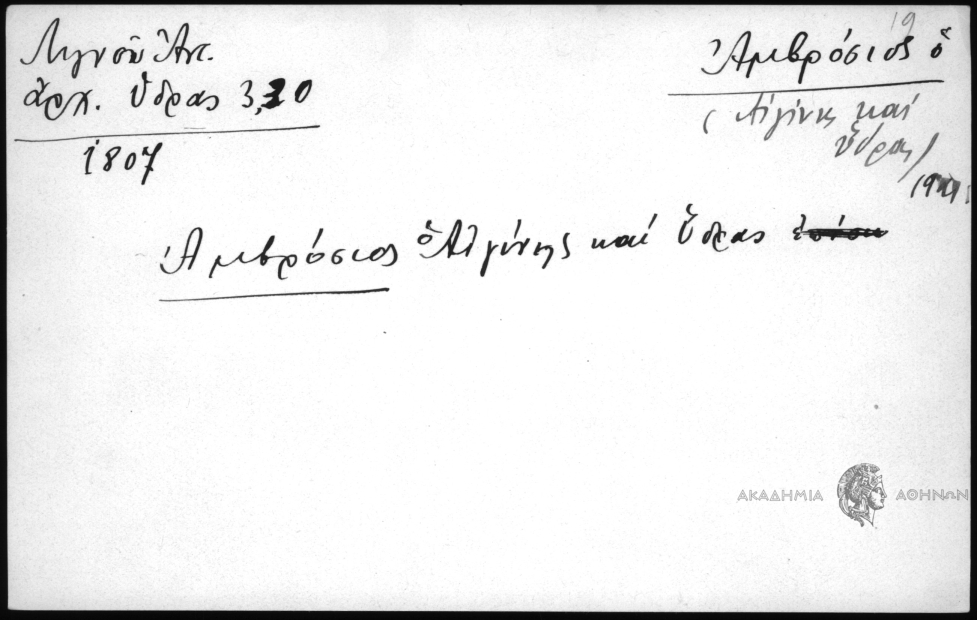 Λιγνοῦ Ἀντ.
ἀρχ. Ὕδρας 3, 20
1807
19
Ἀμβρόσιος ὁ
(Αἰγίνης καὶ
Ὕδρας)
Ἀμβρόσιος ὁ Αἰγίνης καί Ὕδρας
ΑΚΑΔΗΜΙΑ ΑΘΗΝΩΝ